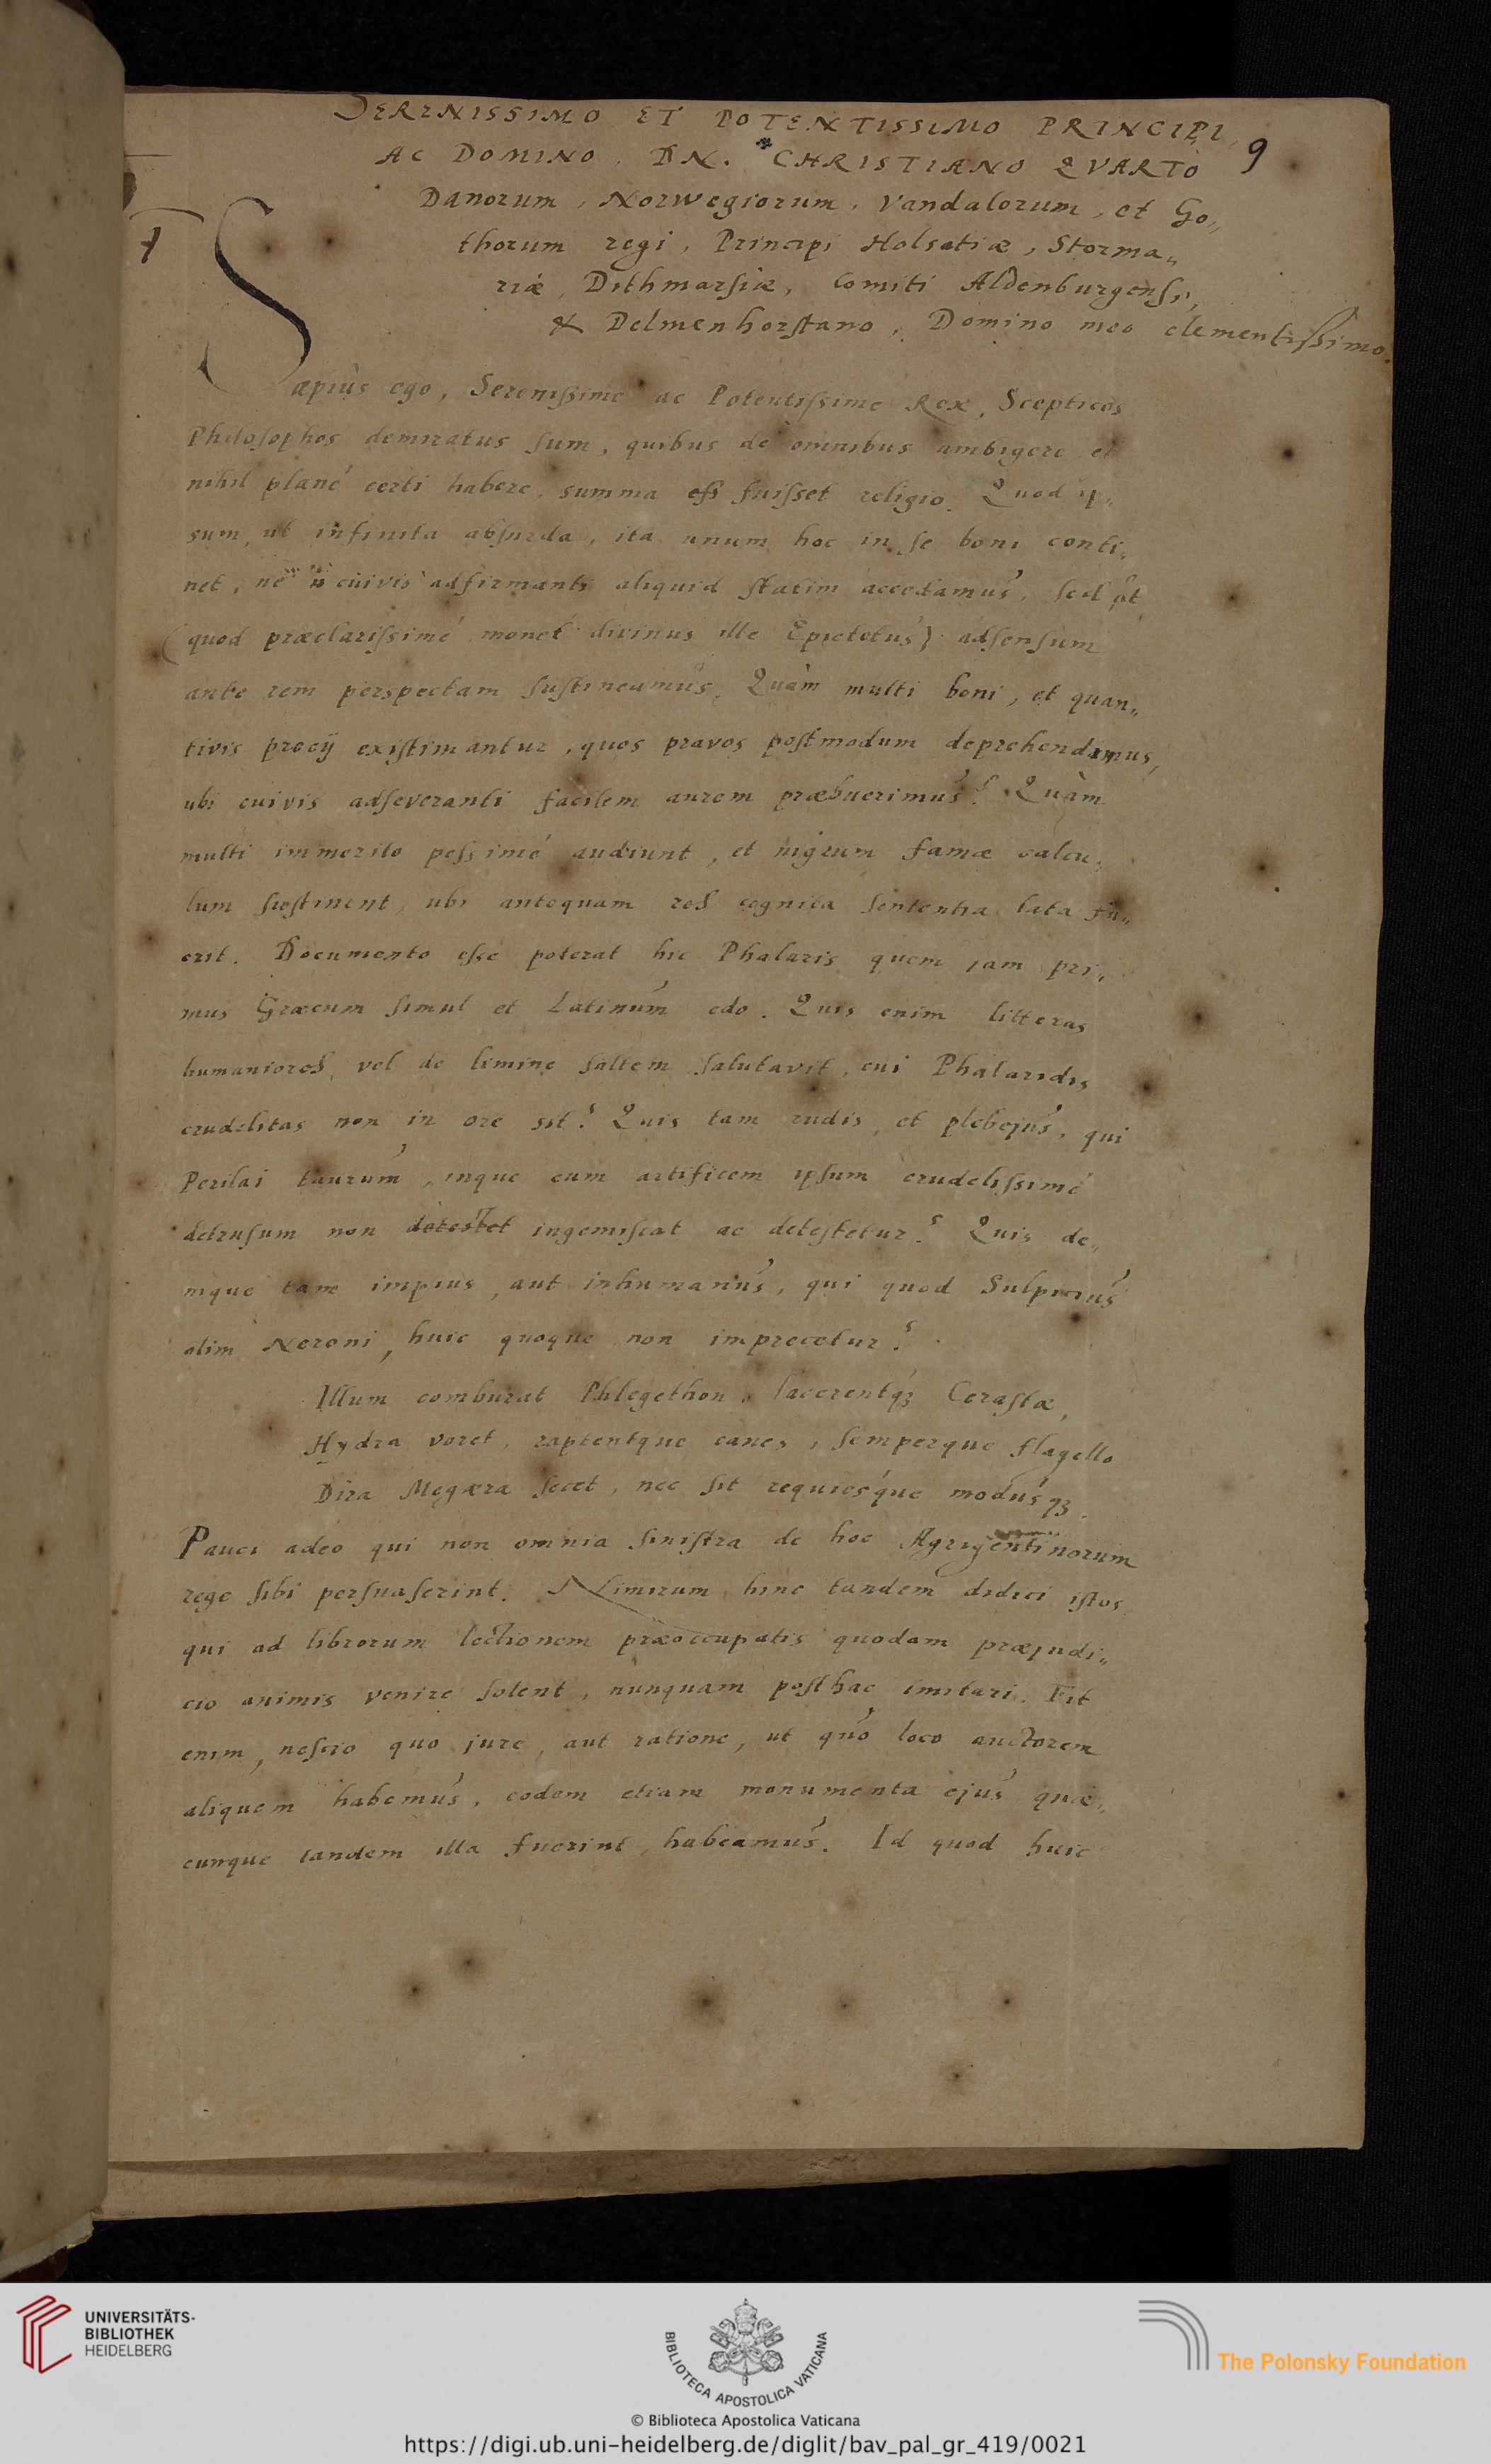 SERENISSIMO ET POTENTISSIMO PRINCIPI,
AC DOMINO, DN. CHRISTIANO QVARTO
9
Danorum, Norwegiorum, Vandalorum, et Go„
thorum regi, Principi Holsatiæ, Storma„
riæ, Dithmarsiæ, Comiti Aldenburgensi,
& Delmenhorstano, Domino meo clementissimo.
Sæpiùs ego, Serenissime ac Potentissime Rex, Scepticos
Philosophos demiratus sum, quibus de omnibus ambigere et
nihil planè certi habere, summa fuisset religio. Quod ip„
sum, ut infinita absurda, ita unum hoc in se boni conti„
net, ne cuivis adfirmanti aliquid statim accedamus, sed
(quod præclarissimè monet divinus ille Epictetus) adsensum
ante rem perspectam sustineamus. Quàm multi boni, et quan„
tivis precij existimantur, quos pravos postmodum deprehendimus,
ubi cuivis adseveranti facilem aurem præbuerimus? Quàm
multi immerito pessimè audiunt, et nigrum famæ calcu„
lum sustinent, ubi antequam res cognita sententia lata fu„
erit. Documento esse poterat hic Phalaris quem jam pri„
mus Græcum simul et Latinum edo. Quis enim litteras
humaniores vel de limine saltem salutavit, cui Phalaridis
crudelitas non in ore sit? Quis tam rudis, et plebejus, qui
Perilai taurum, inque eum artificem ipsum crudelissimè
detrusum non detestet ingemiscat ac detestetur? Quis de„
nique tam impius, aut inhumanus, qui quod Sulpicius
olim Neroni, huic quoque non imprecetur?
Illum comburat Phlegethon, lacerentq3 Cerastæ,
Hydra voret, raptentque canes, semperque flagello
Dira Megæra secet, nec sit requiesque modusq3.
Pauci adeo qui non omnia sinistra de hoc Agrigentinorum
rege sibi persuaserint. Nimirum hinc tandem didici istos
qui ad librorum lectionem præoccupatis quodam præjudi„
cio animis venire solent, nunquam posthac imitari. Fit
enim, nescio quo jure, aut ratione, ut quo loco auctorem
aliquem habemus, eodem etiam monumenta ejus quæ„
cunque tandem illa fuerint, habeamus. Id quod huic
UNIVERSITÄTS-
BIBLIOTHEK
HEIDELBERG
BIBLIOTECA APOSTOLICA VATICANA
The Polonsky Foundation
© Biblioteca Apostolica Vaticana
https://digi.ub.uni-heidelberg.de/diglit/bav_pal_gr_419/0021